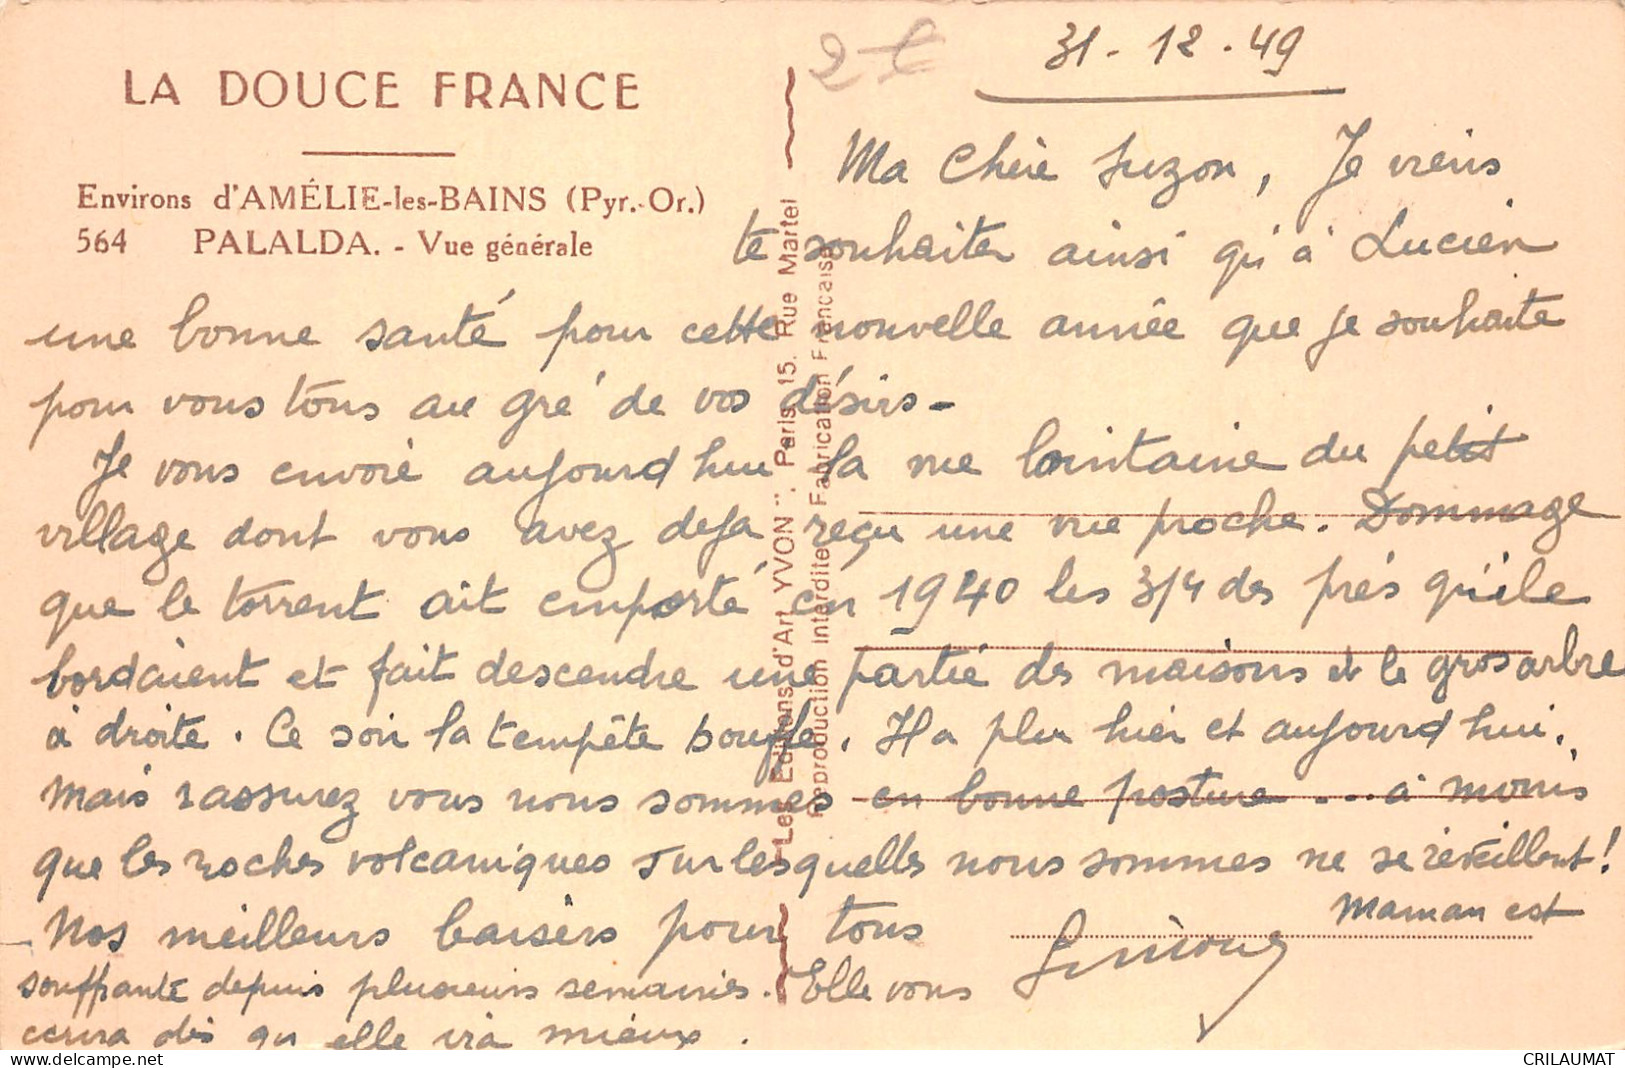 LA DOUCE FRANCE
Environs d'AMÉLIE-les-BAINS (Pyr.-Or.)
564 PALALDA. - Vue générale
Les Editions d'Art YVON", Paris, 15, Rue Martel
Reproduction Interdite Fabrication Française
31-12-49
Ma Chère Suzon, Je viens
te souhaiter ainsi qu'à Lucien
une bonne santé pour cette nouvelle année que je souhaite
pour vous tous au gré de vos désirs -
Je vous envoie aujourd hui la vue lointaine du petit
village dont vous avez deja reçu une vue proche. Dommage
que le torrent ait emporté en 1940 les 3/4 des prés qu'ils
bordaient et fait descendre une partie des maisons et le gros arbre
à droite. Ce soir la tempête souffle. Il a plu hier et aujourd hui.
Mais rassurez vous nous sommes en bonne posture ... à moins
que les roches volcaniques sur lesquelles nous sommes ne se réveillent!
Nos meilleurs baisers pour tous
Simone
Maman est
souffrante depuis plusieurs semaines. Elle vous
ecrira dès qu elle ira mieux.
CRILAUMAT